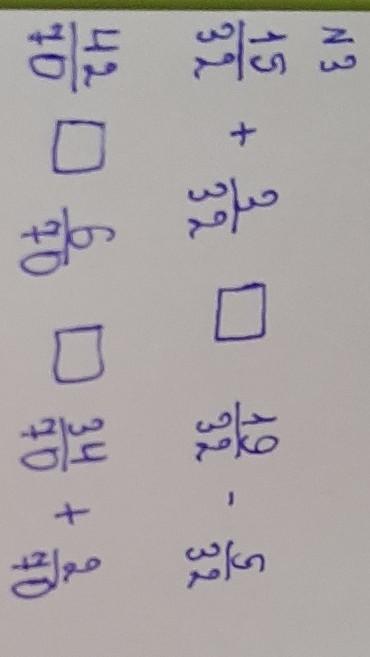 N3
15/32 + 3/32 □ 19/32 - 5/32
42/70 □ 6/70 □ 34/70 + 2/70